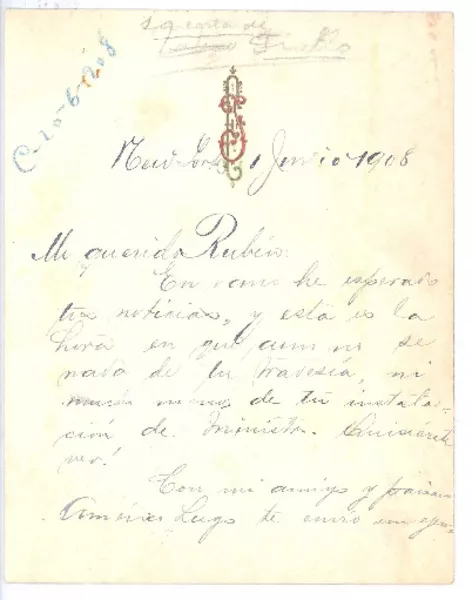 sq carta de
Fiallo
C-25-6-908
New York 1 Junio 1908
Mi querido Rubén:
En vano he esperado
tus noticias, y esta es la
hora en que aun no se
nada de tu travesía, ni
mucho menos de tu instala-
ción de Ministro. Quisiérate
ver!
Con mi amigo y paisano
Américo Lugo te envío un